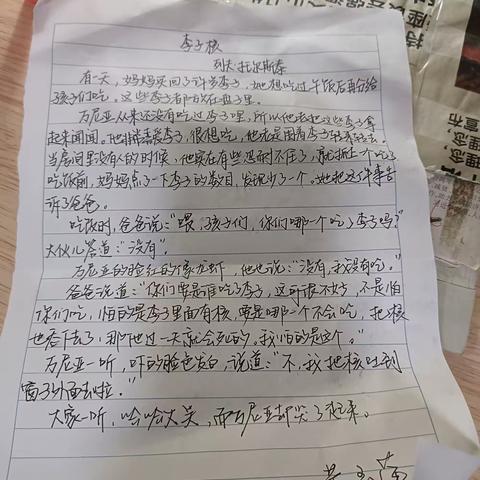 李子核
列夫·托尔斯泰
有一天，妈妈买回了许多李子，她想吃过午饭后再分给
孩子们吃。这些李子都放在盘子里。
万尼亚从来还没有吃过李子哩，所以他老把这些李子拿
起来闻闻。他非常喜爱李子，很想吃，他老是围着李子转来转去。
当房间里没人的时候，他实在有些忍耐不住了，就抓上一个吃了
吃饭前，妈妈点了一下李子的数目，发现少了一个。她把这件事告
诉了爸爸。
吃饭时，爸爸说："喂，孩子们，你们哪一个吃了李子吗？"
大伙儿答道："没有"。
万尼亚的脸红的像龙虾，他也说："没有，我没有吃。"
爸爸说道："你们要是谁吃了李子，这可很不好，不是怕
你们吃，怕的是李子里面有核，要是哪一个不会吃，把核
也吞下去了，那他过一天就会死的。我怕的是这个。"
万尼亚一听，吓的脸色发白，说道："不，我把核吐到
窗子外面去啦。"
大家一听，哈哈大笑，而万尼亚却哭了起来。
持
理念，